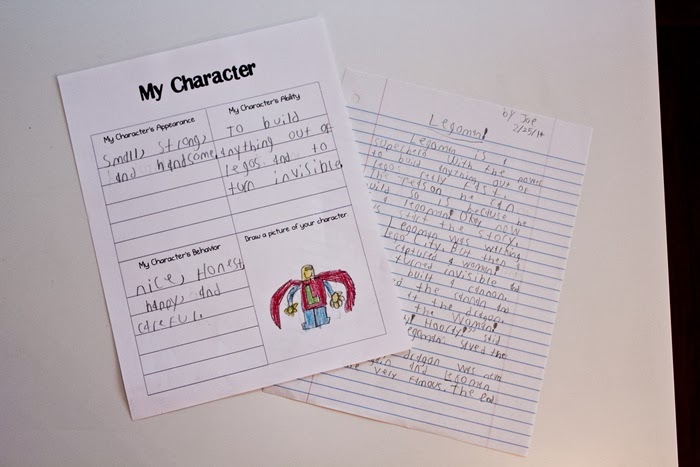 My Character
My Character's Appearance
Small, Strong,
and handsome
My Character's Ability
To build
anything out of
legos and to
turn invisible
My Character's Behavior
nice, Honest,
happy, and
careful.
Draw a picture of your character
L
by Joe
2/25/14
Legoman!
Legoman is a
superhero with the power
to build anything out of
legos
the reason he can
is because he
legoman! Ok, now
start the story.
Legoman was walking
Lego City. But then a
captured a woman!
turned invisible and
built a cannon.
the cannon and
the dragon.
the woman!
Hooray! said
legoman. Saved the
dragon was
and legoman
very famous. The End.